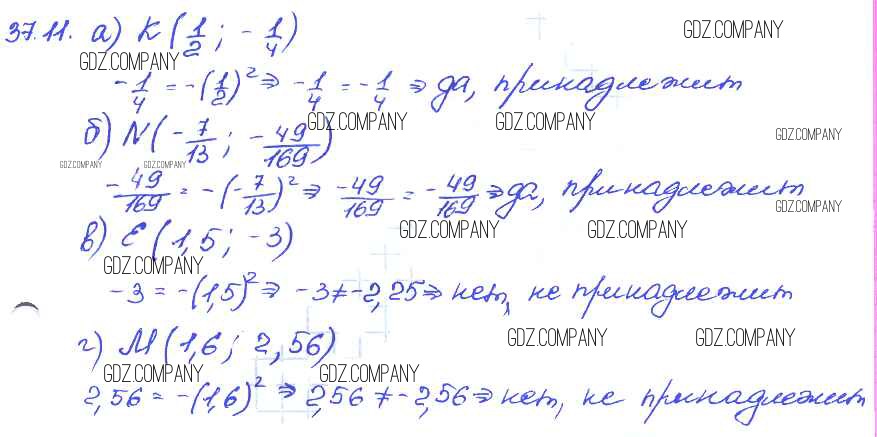 37.11. а) K (1/2 ; - 1/4) GDZ.COMPANY
GDZ.COMPANY
- 1/4 = -(1/2)² ⇒ - 1/4 = - 1/4 ⇒ да, принадлежит
б) N (- 7/13 ; - 49/169) GDZ.COMPANY GDZ.COMPANY GDZ.COMPANY
GDZ.COMPANY GDZ.COMPANY
- 49/169 = -(- 7/13)² ⇒ - 49/169 = - 49/169 ⇒ да, принадлежит
GDZ.COMPANY
в) E (1,5 ; -3) GDZ.COMPANY GDZ.COMPANY
GDZ.COMPANY
-3 = -(1,5)² ⇒ -3 ≠ -2,25 ⇒ нет, не принадлежит
г) M (1,6 ; 2,56) GDZ.COMPANY GDZ.COMPANY
GDZ.COMPANY GDZ.COMPANY
2,56 = -(1,6)² ⇒ 2,56 ≠ -2,56 ⇒ нет, не принадлежит